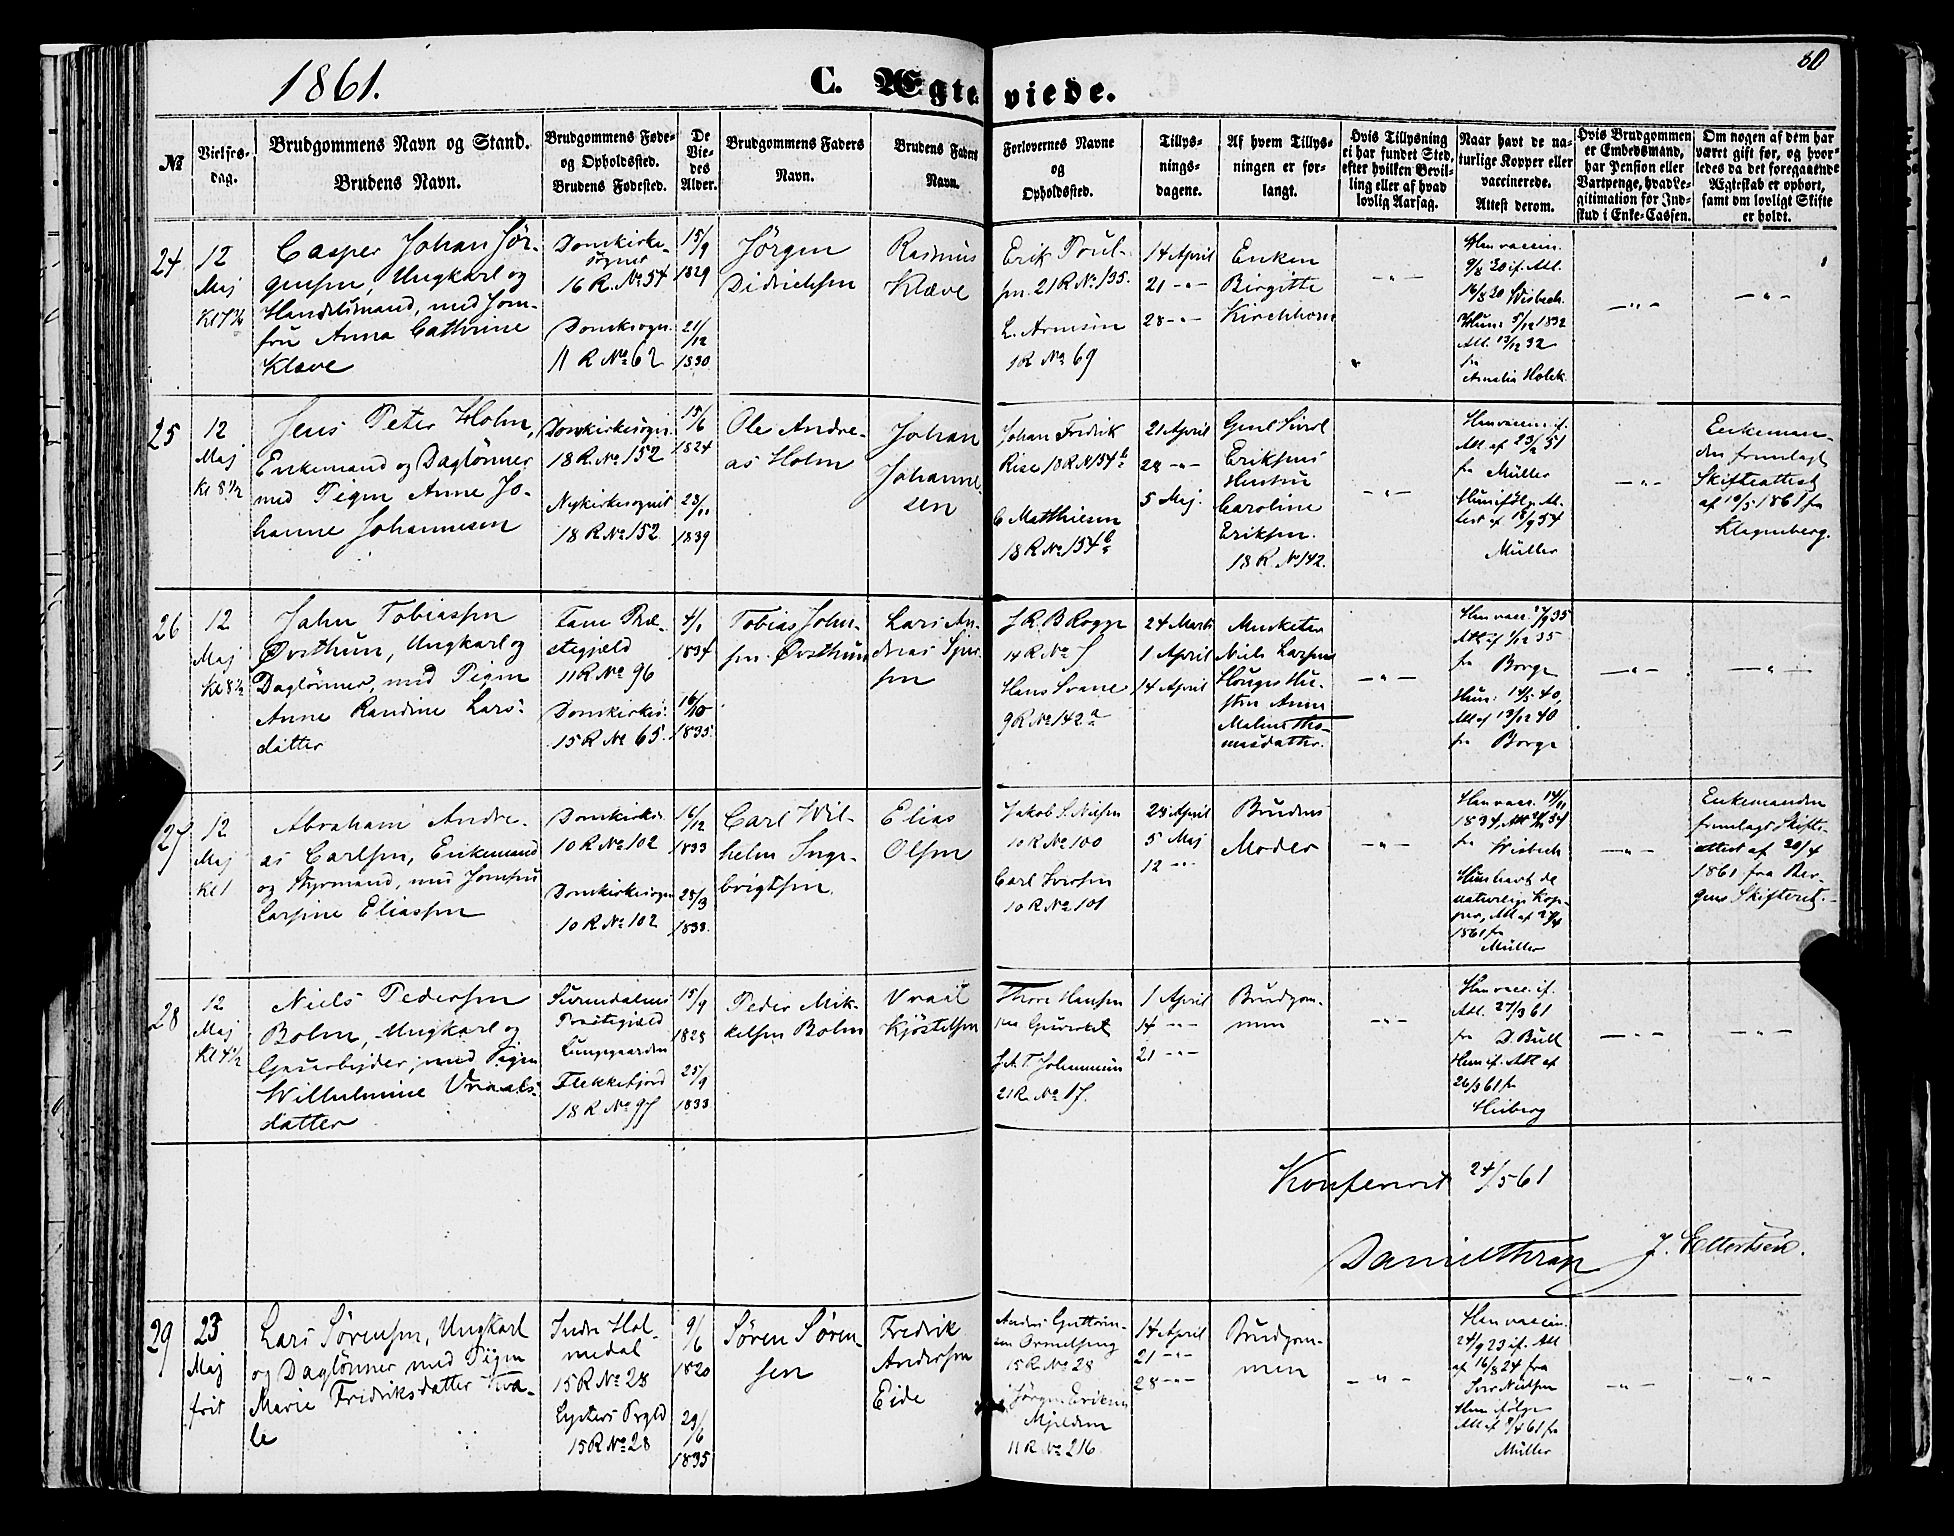 1861.
C. Ægteviede.
80
№
Vielses-
dag.
Brudgommens Navn og Stand.
Brudens Navn.
Brudgommens Føde-
og Opholdssted.
Brudens Fødested.
De
Vie-
des
Alder.
Brudgommens Faders
Navn.
Brudens Faders
Navn.
Forlovernes Navne
og
Opholdssted.
Tillys-
nings-
dagene.
Af hvem Tillys-
ningen er for-
langt.
Hvis Tillysning
ei har fundet Sted,
efter hvilken Bevil-
ling eller af hvad
lovlig Aarsag.
Naar havt de na-
turlige Kopper eller
vaccinerede.
Attest derom.
Hvis Brudgommen
er Embedsmand,
har Pension eller
Vartpenge, hvad Le-
gitimation for Ind-
skud i Enke-Cassen.
Om nogen af dem har
været gift før, og hvor-
ledes da det foregaaende
Ægteskab er ophørt,
samt om lovligt Skifte
er holdt.
24
12
Maj
Casper Johan Jør-
gensen, Ungkarl og
Handelsmand, med Jom-
fru Anna Cathrine
Klæve
Domkirke-
sognet
16 R. No 54
Domksogn.
11 R No 62
15/9
1829
21/12
1830
Jørgen
Didrichsen
Rasmus
Klæve
Erik Poul-
sen. 21 R No 135.
L. Arnesen
1 R No 69
14 April
21 -"-
28 -"-
Enken
Birgitte
Kirchhorn
-"-
Han vaccin.
9/8 30 if. Att.
16/8 30 Wisbech.
Hun: 5/12 1832
Att. 13/12 32
fra
Amalia Holck
-"-
-"-
25
12
Maj
Kl 8 1/2
Jens Peter Holm,
Enkemand og Dagłønner
med Pigen Anne Jo-
hanne Johannesen
Domkirkesogn.
18 R. No 152
Nykirkesognet
18 R No 152
15/6
1824
23/11
1839
Ole Andre-
as Holm
Johan
Johanne-
sen
Johan Fredrik
Riise 18 R N 154 b
C Matthiesen
18 R No 154 b
21 April
28 -"-
5 Maj.
Eriksens
Hustru
Caroline
Eriksen.
18 R No 142.
-"-
Han vaccin. if.
Att af 23/2 51
fra Müller
Hun ifølge At-
test af 18/9 54
Müller
-"-
Enkeman-
den fremlagt
Skifteattest
af 10/5 1861 fra
Klagenberg.
26
12
Maj
Kl 8 1/2
Jahn Tobiassen
Øvsthun, Ungkarl og
Dagłønner, med Pigen
Anne Randine Lars-
datter
Fane Præ-
stegjeld
11 R No 96
Domkirkes.
15 R No 65.
4/1
1834
16/10
1835
Tobias John-
sen Øvsthun
Lars An-
dreas
sen
J. R. B Rogge
14 R No 5
Hans Svane
9 R No 142 a
24 Marts
1 April
14 April
Musketer
Niels Larsens
Hu-
stru Anne
Malene Tho-
masdatter.
-"-
Han vacc. 17/9 35
Att af 1/12 35
fra Borge
Hun: 14/5 40,
Att af 13/12 40
fra Borge
-"-
-"-
27
12
Maj
Kl 1
Abraham Andre-
as Carlsen, Enkemand
og Styrmand, med Jomfru
Larsine Eliassen
Domkirks.
10 R No 102
Domkirkesogn
10 R No 102
16/12
1833
28/3
1833.
Carl Wil-
helm Inge-
brigtsen.
Elias
Olsen
Jakob S. Nielsen
10 R No 100
Carl Iversen
10 R No 101
28 April
5 Maj
12 -"-
Brudens
Moder
-"-
Han vacc. 14/11
1834, Att
fra Wisbech
Hun havt de
naturlige Kop-
per, Att af
1861 fra
Müller
-"-
Enkemanden
fremlagt Skifte-
attest af 20/4
1861 fra Ber-
gens Skifteret.-
28
12
Maj
Kl 4 1/2
Niels Pedersen
Bolm, Ungkarl og
Gaarbejder, med Pigen
Wilhelmine Vraals-
datter
Surendalens
Præstegjeld
Lungegaarden
Flekkefjord
18 R No 97
15/9
1828
25/9
1833
Peder Mik-
kelsen Bolm
Vraal
Kjøstelsen
Thore Hansen
J. A. T. Johannesen
21 R No 17.
1 April
14 -"-
21 -"-
Brudgom-
men
-"-
Han vacc. if.
Att. 27/3 61
fra D. Bull
Hun if. Att af
26/3 61 fra
Heiberg
-"-
-"-
Konfereret 24/5 61
Daniel Thrap J. Ellertsen.
29
23
Maj
frit
Lars Sørensen, Ungkarl
og Dagłønner med Pigen
Marie Fredriksdatter Kva-
le
Indre Hol-
medal
15 R No 28
Lysters Prgld
15 R No 28
9/6
1820
29/6
1835
Søren Søren-
sen
Fredrik
Andersen
Eide
Anders Guttorm-
sen
15 R No 28
Jørgen Eriksen
Mjelden
11 R No 216
14 April
21 -"-
28 -"-
Brudgom-
men
-"-
Han vaccin.
24/9 23 if. Att
af 16/8 24 fra
Iver Nielsen
Hun ifølge
Att af 9/4 61 fra
Müller
-"-
-"-